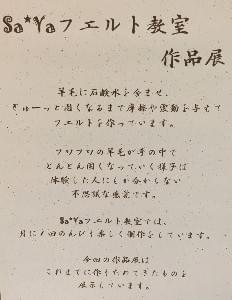 Sa*Yaフエルト教室
作品展
羊毛に石鹸水を含ませ、
ぎゅーっと固くなるまで摩擦や震動を与えて
フエルトを作っています。
フワフワの羊毛が手の中で
どんどん固くなっていく様子は
体験した人にしか分からない
不思議な感覚です。
Sa*Yaフエルト教室では、
月に1回のんびり楽しく制作をしています。
今回の作品展は
これまでに作りためてきたものを
展示しています。